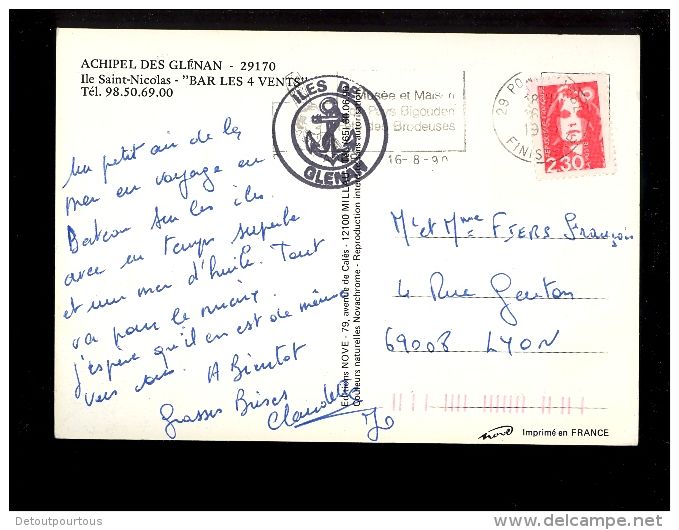 ACHIPEL DES GLÉNAN - 29170
Ile Saint-Nicolas - "BAR LES 4 VENTS"
Tél. 98.50.69.00
ILES DE
GLENAN
Musée et Maison
Pays Bigouden
des Brodeuses
16-8-90
29 PO
FINIS
2,30
Un petit air de la
mer en voyage en
Bateau sur les iles
avec un temps superbe
et une mer d'huile. Tout
va pour le mieux.
j'espère qu'il en est de même
vers vous. A Bientot
Grosses Bises
Claudette
Jo
Editions NOVE - 79, avenue de Calès - 12100 MILLAU
Couleurs naturelles Novachrome - Reproduction interdite sans autorisation
Mr et Mme FIERS François
4 Rue Genton
69008 LYON
nove Imprimé en FRANCE
Detoutpourtous
delcampe.net